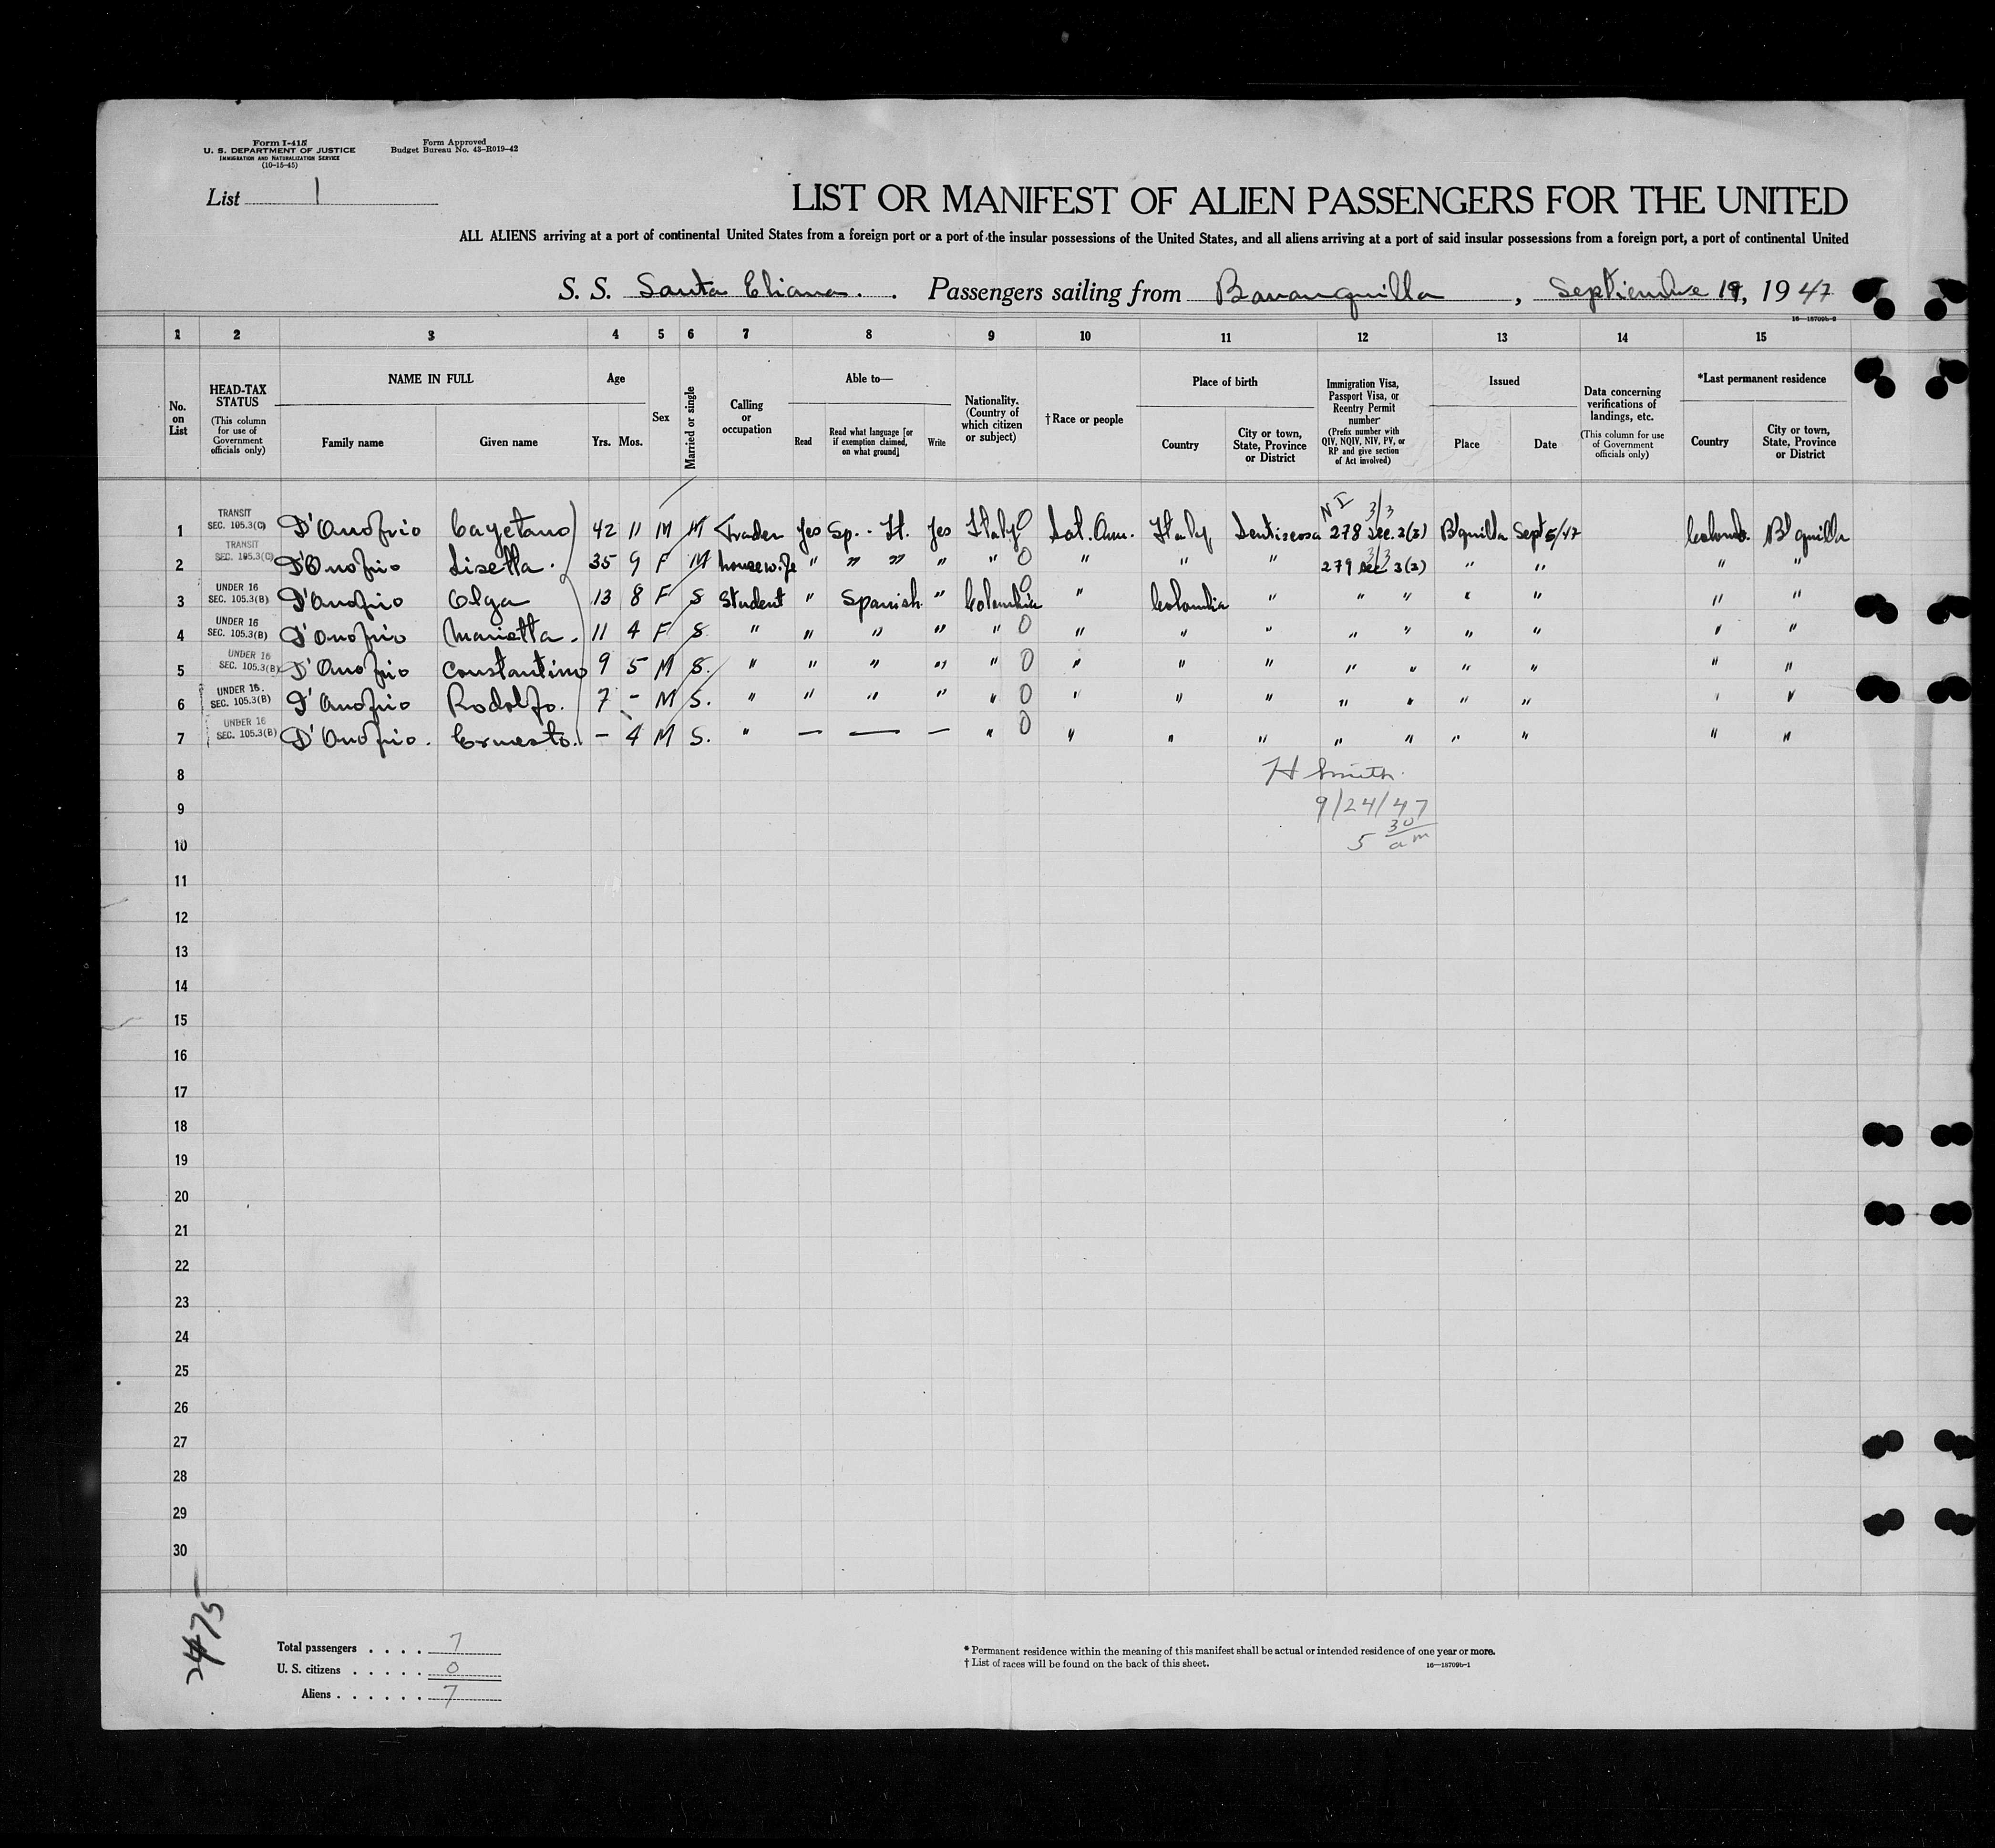 Form I-415
U. S. DEPARTMENT OF JUSTICE
IMMIGRATION AND NATURALIZATION SERVICE
(10-15-45)
Form Approved
Budget Bureau No. 43-R019-42
List 1
LIST OR MANIFEST OF ALIEN PASSENGERS FOR THE UNITED
ALL ALIENS arriving at a port of continental United States from a foreign port or a port of the insular possessions of the United States, and all aliens arriving at a port of said insular possessions from a foreign port, a port of continental United
S. S. Santa Eliana. Passengers sailing from Barranquilla, Septiembre 19, 1947
16—18709b-2
1 2 3 4 5 6 7 8 9 10 11 12 13 14 15
No. on List
HEAD-TAX STATUS
(This column for use of Government officials only)
NAME IN FULL
Family name Given name
Age
Yrs. Mos.
Sex
Married or single
Calling or occupation
Able to—
Read
Read what language [or if exemption claimed, on what ground]
Write
Nationality. (Country of which citizen or subject)
†Race or people
Place of birth
Country
City or town, State, Province or District
Immigration Visa, Passport Visa, or Reentry Permit number
(Prefix number with QIV, NQIV, NIV, PV, or RP and give section of Act involved)
Issued
Place Date
Data concerning verifications of landings, etc.
(This column for use of Government officials only)
*Last permanent residence
Country
City or town, State, Province or District
NI 3/3
1 TRANSIT SEC. 105.3(C) D'Onofrio Cayetano 42 11 M M Trader Yes Sp. - It. Yes Italy 0 Lat. Am. Italy 278 Sec. 3(3) B'quilla Sept 5/47 Colomb. B'quilla
3/3
2 TRANSIT SEC. 105.3(C) D'Onofrio Lisetta. 35 9 F M housewife " " " " " 0 " " " 279 Sec 3(3) " " " "
3 UNDER 16 SEC. 105.3(B) D'Onofrio Olga 13 8 F S Student " Spanish " Colombia 0 " Colombia " " " " " " "
4 UNDER 16 SEC. 105.3(B) D'Onofrio Marietta. 11 4 F S. " " " " " 0 " " " " " " " " "
5 UNDER 16 SEC. 105.3(B) D'Onofrio Constantino 9 5 M S. " " " " " 0 " " " " " " " " "
6 UNDER 16. SEC. 105.3(B) D'Onofrio Rodolfo. 7 - M S. " " " " " 0 " " " " " " " " "
7 UNDER 16 SEC. 105.3(B) D'Onofrio. Ernesto. - 4 M S. " — — — " 0 " " " " " " " " "
8 H Smith.
9 9/24/47
10 5 30 am
11
12
13
14
15
16
17
18
19
20
21
22
23
24
25
26
27
28
29
30
2475
Total passengers . . . . 7
U. S. citizens . . . . . 0
Aliens . . . . . . 7
* Permanent residence within the meaning of this manifest shall be actual or intended residence of one year or more.
† List of races will be found on the back of this sheet.
16—18709b-1